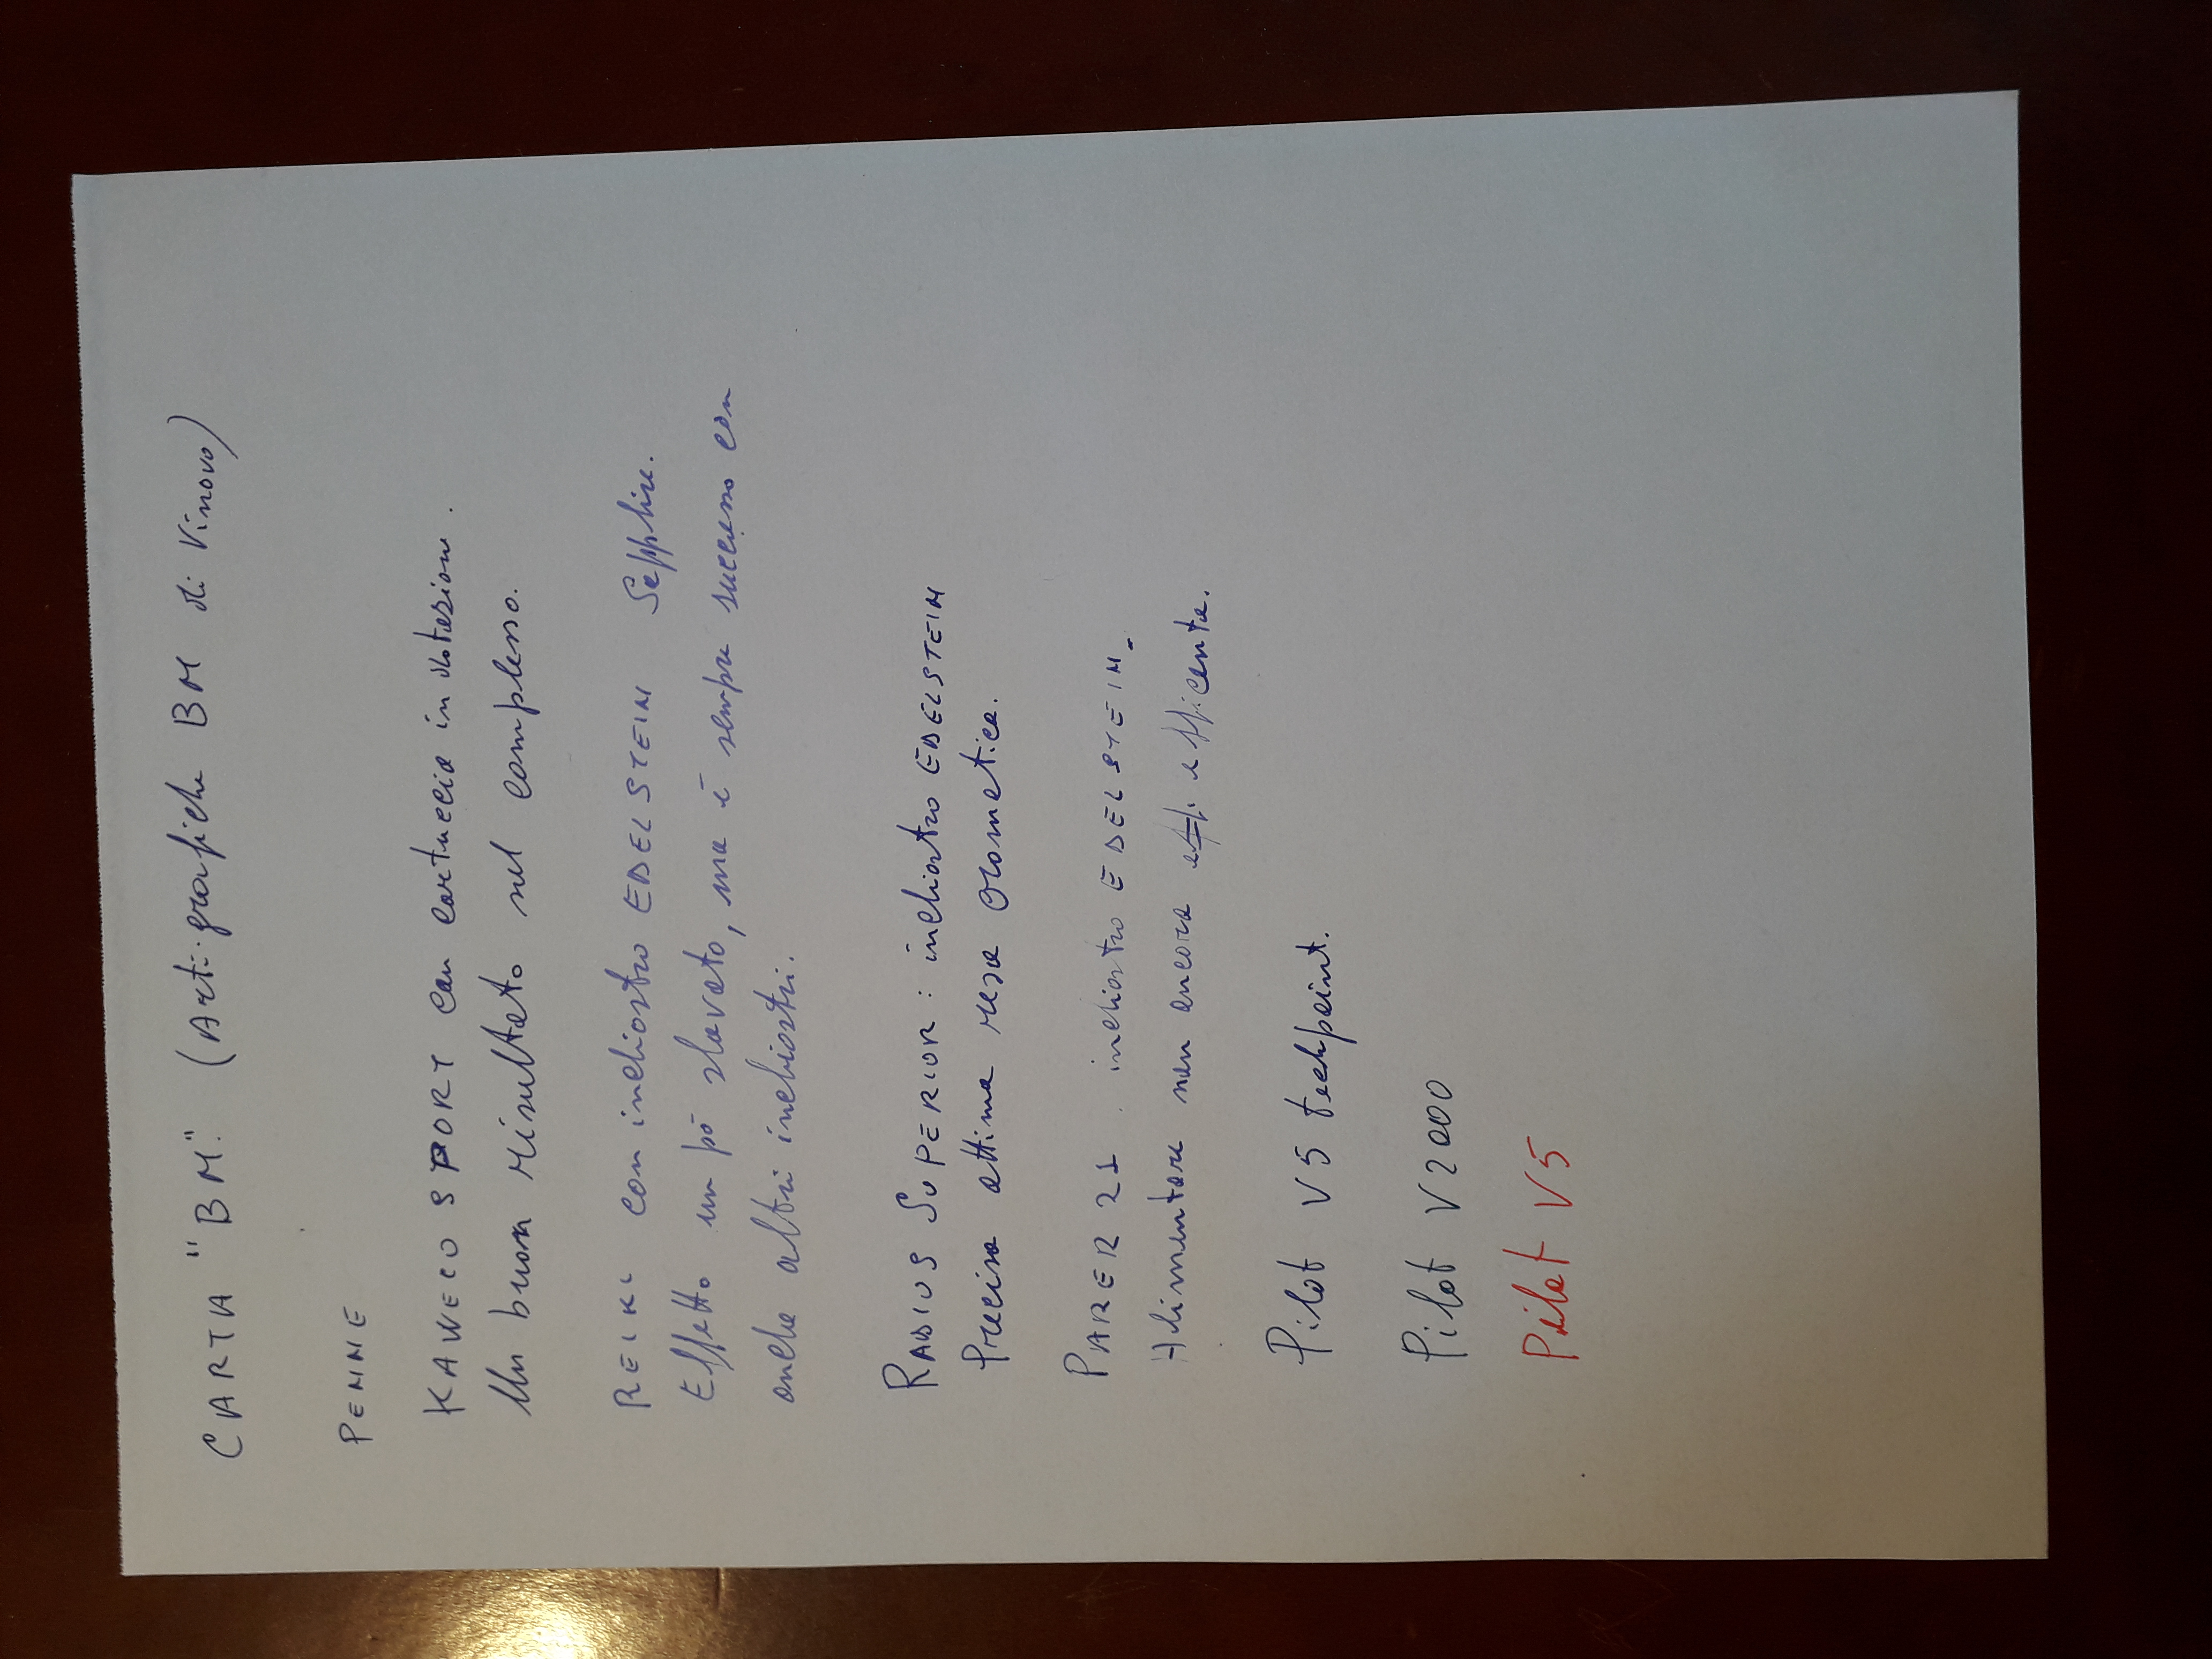 CARTA "BM" (Arti grafiche BM di Vinovo)
PENNE
KAWECO SPORT con cartuccia in dotazione.
Un buon risultato nel complesso.
REIKI con inchiostro EDELSTEIN Sapphire.
Effetto un pò slavato, ma è sempre successo con
anche altri inchiostri.
RADIUS SUPERIOR: inchiostro EDELSTEIN
Precisa ottima resa cromatica.
PARER 21. inchiostro EDELSTEIN.
Alimentare non ancora effi efficente.
Pilot V5 techpoint.
Pilot V2000
Pilot V5